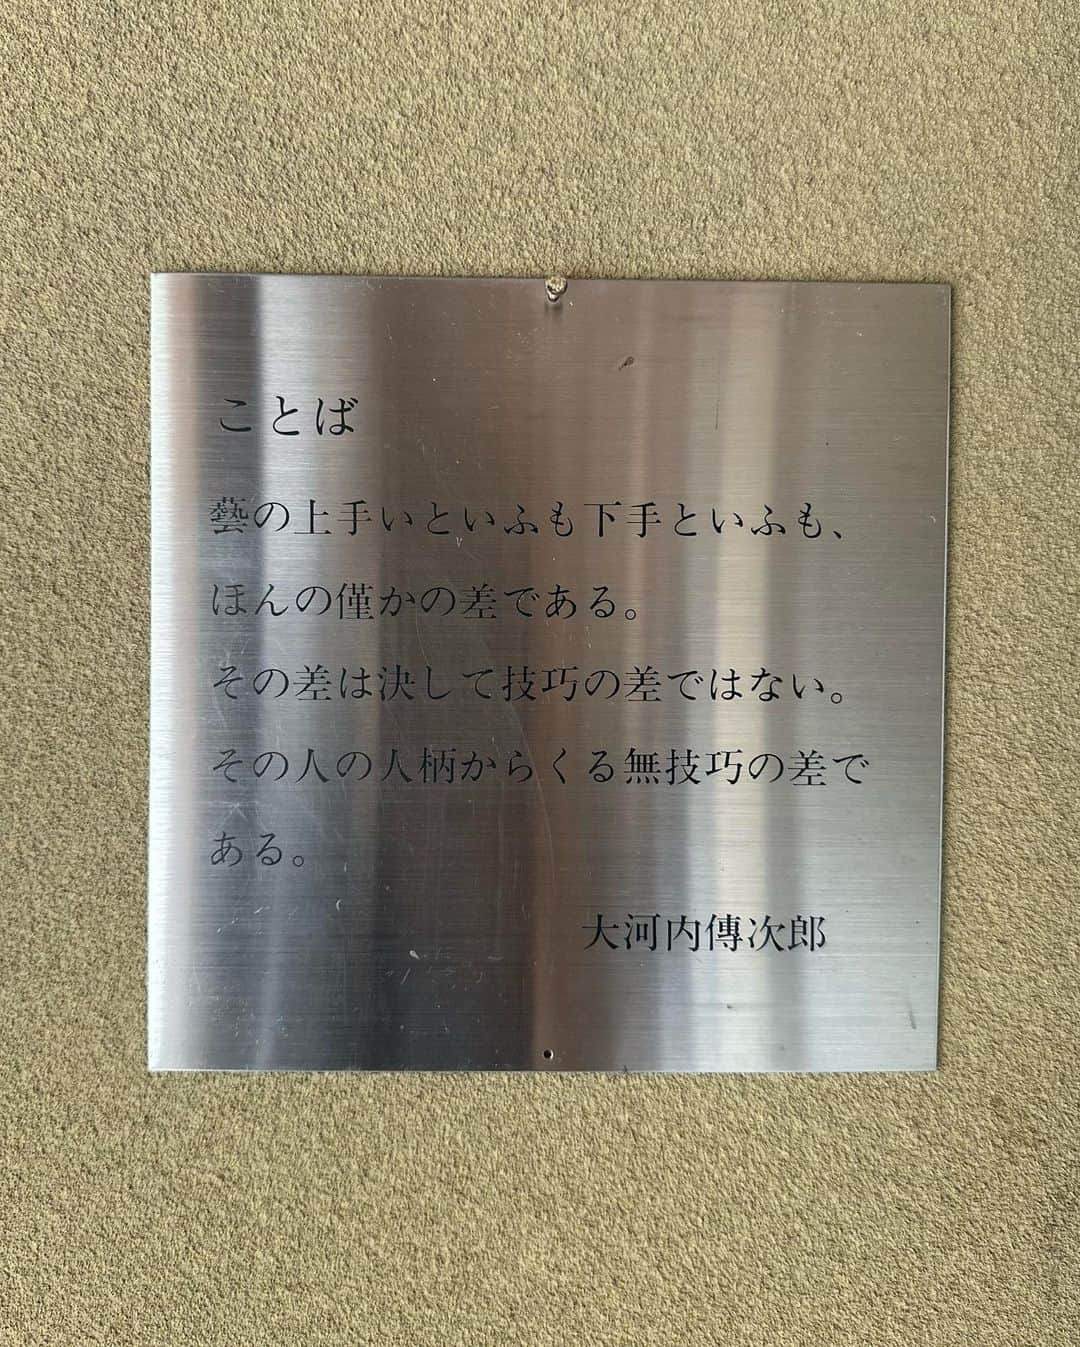 ことば
藝の上手いといふも下手といふも、
ほんの僅かの差である。
その差は決して技巧の差ではない。
その人の人柄からくる無技巧の差で
ある。
大河内傳次郎